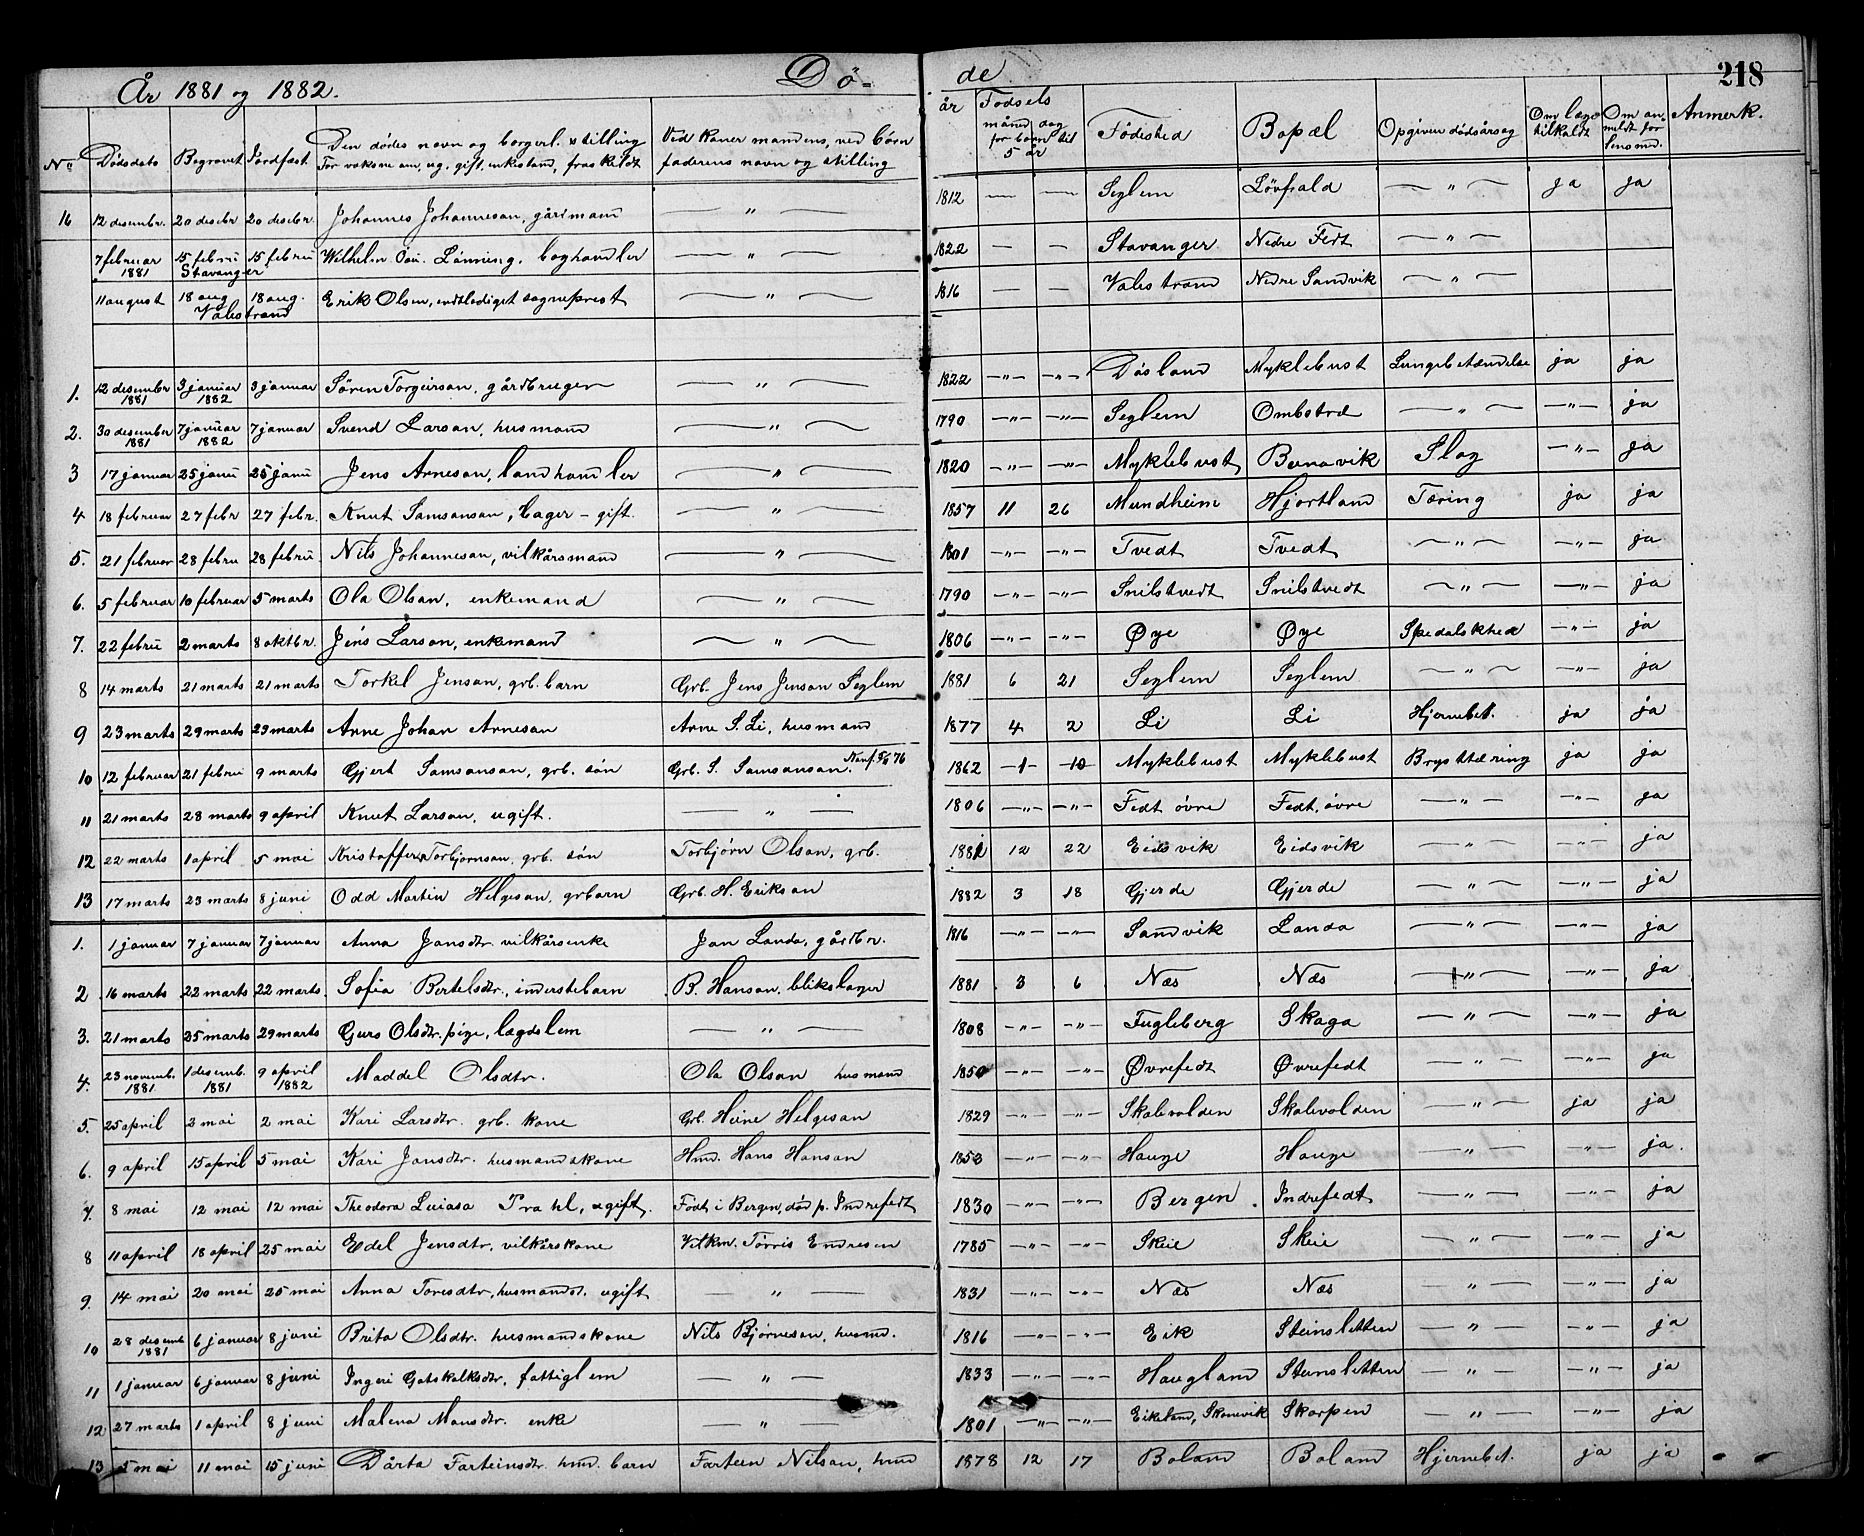 År 1881 og 1882. Dø- de 218
No Dødsdato Begravet Jordfæst. Den dødes navn og borgerl. stilling For voksne om ug. gift, enkestand, fraskildt Ved koner mandens, ved børn faderens navn og stilling år Fødsels måned dag for børn til 5 år Fødested Bopæl Opgiven dødsårsag Om læge tilkaldt Om anmeldt for lensmd. Anmerk.
16 12 desembr. 20 desbr 20 desbr. Johannes Johanneson, gårdmand — " — 1812 — — Seglem Løvfald — " — ja ja
7 februar 1881 15 febru Stavanger 15 febru Wilhelm Lønning, boghandler — " — 1822 — — Stavanger Nedre Fedt — " —
11 august 18 aug Valestrand 18 aug. Erik Olsen, entlediget sogneprest — " — 1816 — — Valestrand Nedre Sandvik — " —
1. 12 desember 1881 3 januar 1882 3 januar Søren Torgeirson, gårdbruger — " — 1822 —"— —"— Døsland Myklebust Lungebetændelse ja ja
2. 30 desember 1881 7 januar 1882 7 januar Svend Larson, husmand — " — 1790 —"— —"— Seglem Ombstrø — " — —"— ja
3 17 januar 25 janu 25 janu Jens Arneson, landhandler — " — 1820 —"— —"— Myklebust Bernavik Slag —"— ja
4 18 februar 27 febr 27 febr. Knut Samsonson, bager - gift. — " — 1857 11 26 Mundheim Hjortland Tæring ja ja
5. 21 februar 28 febru 28 febru Nils Johanneson, vilkårsmand — " — 1801 —"— —"— Tvedt Tvedt — " — —"— ja
6. 5 februar 10 februar 5 marts Ola Olson, enkemand — " — 1790 —"— —"— Snilstvedt Snilstvedt — " — —"— ja
7. 22 febru 2 marts 8 oktbr. Jens Larson, enkemand — " — 1806 —"— —"— Øye Øye Spedalskhed —"— ja
8 14 marts 21 marts 21 marts Torkel Jenson, grb. barn Grb. Jens Jenson Seglem 1881 6 21 Seglem Seglem — " — —"— ja
9 23 marts 29 marts 29 marts Arne Johan Arneson Arne S. Li, husmand 1877 4 2 Li Li Hjernebet. ja ja
10 12 februar 21 febru 9 marts Gjert Samsonson, grb. søn Grb. S. Samsonson. 1862 —1— —10— Myklebust Myklebust Brysttæring ja ja
11 21 marts 28 marts 9 april Knut Larson, ugift. — " — 1806 —"— —"— Fedt øvre Fedt, øvre — " — —"— ja
12 22 marts 1 april 5 mai Kristoffer Torbjørnson, grb. søn Torbjørn Olson, grb. 1881 12 22 Eidsvik Eidsvik — " — —"— ja
13 17 marts 23 marts 8 juni Odd Martin Helgeson, grbarn Grb. H. Erikson 1882 3 18 Gjerde Gjerde — " — —"— ja
1. 1 januar 7 januar 7 januar Anna Jonsdtr. vilkårsenke Jon Landa, gårdbr. 1816 —"— —"— Sandvik Landa — " — —"— ja
2 16 marts 22 marts 22 marts. Sofia Bertelsdtr., inderstebarn B. Hanson, blikslager 1881 3 6 Næs Næs — " — —"— ja
3. 21 marts 25 marts 29 marts Guro Olsdtr. pige, lægdslem — " — 1808 —"— —"— Fugleberg Skaga — " — —"— ja
4. 23 novemb. 1881 1 desemb. 1881 9 april 1882 Maddel Olsdtr. Ola Olson husmand 1850 —"— —"— Øvrefedt Øvrefedt — " — —"— ja
5. 25 april 2 mai 2 mai Kari Larsdtr. grb. kone Grb. Heine Helgeson 1829 —"— —"— Skalevolden Skalevolden — " — ja ja
6. 9 april 15 april 5 mai Kari Jonsdtr. husmandskone Hmd. Hans Hanson 1853 —"— —"— Hauge Hauge — " — —"— ja.
7. 8 mai 12 mai 12 mai Theodora Luiasa Prahl, ugift. Født i Bergen, død p. Indrefedt 1830 —"— —"— Bergen Indrefedt — " — —"— ja
8 11 april 18 april 25 mai Edel Jensdtr, vilkårskone Vilkm. Tørris Endresen 1785 —"— —"— Skeie Skeie — " — —"— ja
9. 14 mai 20 mai 25 mai Anna Toresdtr, husmandst. ugift — " — 1831 —"— —"— Næs Næs — " — —"— ja
10 28 desemb 1881 6 januar 8 juni Brita Olsdtr. husmandskone Nils Bjørneson, husmd. 1816 —"— —"— Eik Steinsletten — " — —"— ja
11 1 januar 6 januar 8 juni Ingeri Gotskalksdtr, fattiglem — " — 1833 —"— —"— Haugland Steinsletten — " — —"— ja
12 27 marts 1 april 8 juni Malena Monsdtr. enke — " — 1801 —"— —"— Eikeland, Skonevik Skarpen — " — —"— ja
13 5 mai 11 mai 15 juni Dårta Farteinsdtr. hmd. barn Fartein Nilson, hmd 1878 12 17 Boland Boland Hjernebet. ja ja